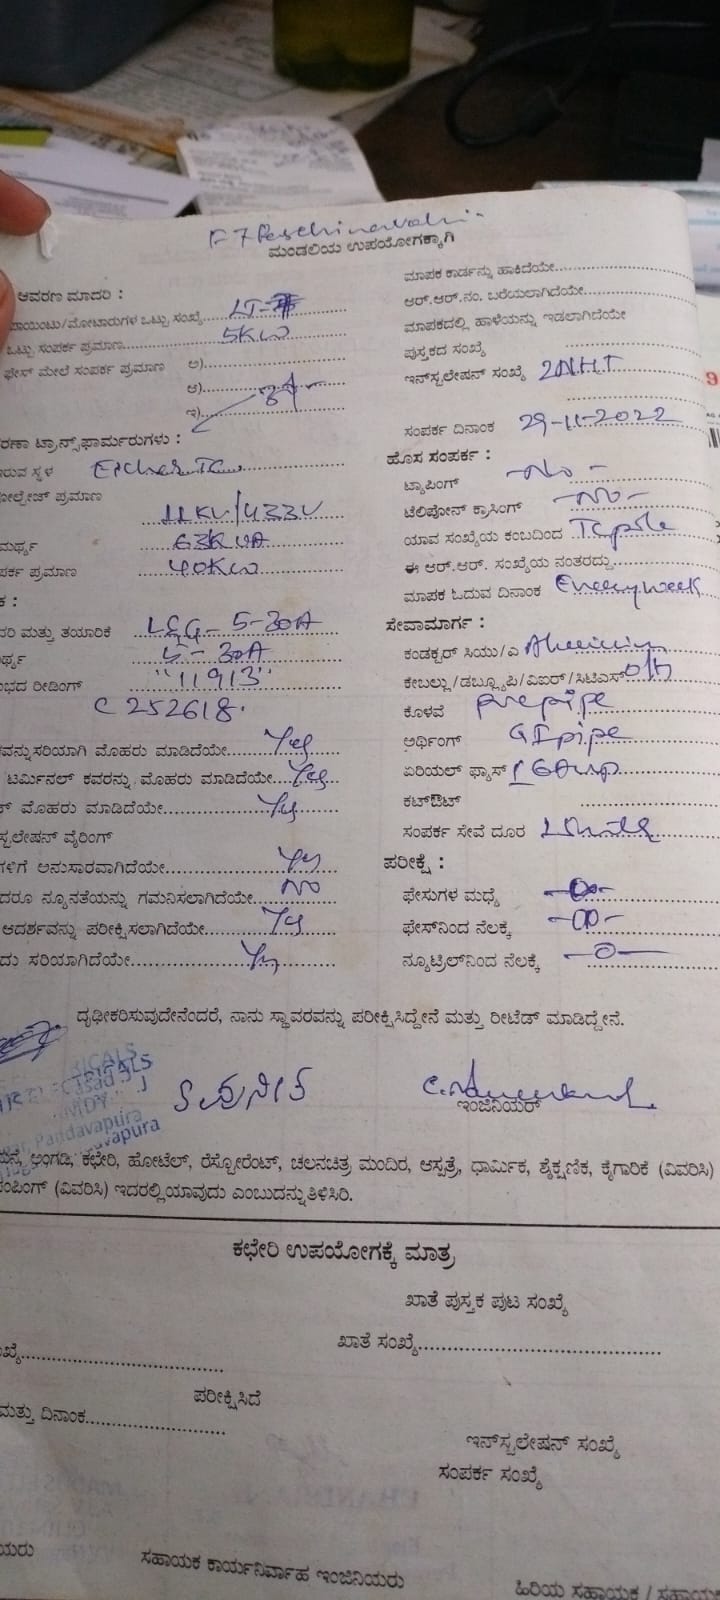 ಮಂಡಲಿಯ ಉಪಯೋಗಕ್ಕಾಗಿ
ಆವರಣ ಮಾದರಿ :
ಪಾಯಿಂಟು/ಮೋಟಾರುಗಳ ಒಟ್ಟು ಸಂಖ್ಯೆ LT-
ಒಟ್ಟು ಸಂಪರ್ಕ ಪ್ರಮಾಣ 5KW
ಫೇಸ್ ಮೇಲೆ ಸಂಪರ್ಕ ಪ್ರಮಾಣ ಅ)
ಆ)
ಇ)
ರಣಾ ಟ್ರಾನ್ಸ್‌ಫಾರ್ಮರುಗಳು :
ರುವ ಸ್ಥಳ
ೋಲ್ಟೇಜ್ ಪ್ರಮಾಣ
11KV/433V
ಮರ್ಥ್ಯ 63KVA
ಪರ್ಕ ಪ್ರಮಾಣ 40KW
ಕ :
ದರಿ ಮತ್ತು ತಯಾರಿಕೆ L&G- 5-30A
ರ್ಥ್ಯ 5-30A
ಂಭದ ರೀಡಿಂಗ್ "11913"
C 252618.
ವನ್ನು ಸರಿಯಾಗಿ ಮೊಹರು ಮಾಡಿದೆಯೇ Yes
ಟರ್ಮಿನಲ್ ಕವರನ್ನು ಮೊಹರು ಮಾಡಿದೆಯೇ Yes
ಕ್ ಮೊಹರು ಮಾಡಿದೆಯೇ Yes
ಸ್ಟಲೇಷನ್ ವೈರಿಂಗ್
ಗಳಿಗೆ ಅನುಸಾರವಾಗಿದೆಯೇ Yes
ದರೂ ನ್ಯೂನತೆಯನ್ನು ಗಮನಿಸಲಾಗಿದೆಯೇ NO
ಆದರ್ಶವನ್ನು ಪರೀಕ್ಷಿಸಲಾಗಿದೆಯೇ Yes
ದು ಸರಿಯಾಗಿದೆಯೇ Yes
ಮಾಪಕ ಕಾರ್ಡನ್ನು ಹಾಕಿದೆಯೇ
ಆರ್.ಆರ್.ನಂ. ಬರೆಯಲಾಗಿದೆಯೇ
ಮಾಪಕದಲ್ಲಿ ಹಾಳೆಯನ್ನು ಇಡಲಾಗಿದೆಯೇ
ಪುಸ್ತಕದ ಸಂಖ್ಯೆ
ಇನ್‌ಸ್ಟಲೇಷನ್ ಸಂಖ್ಯೆ
ಸಂಪರ್ಕ ದಿನಾಂಕ 29-11-2022
ಹೊಸ ಸಂಪರ್ಕ :
ಟ್ಯಾಪಿಂಗ್ -No-
ಟೆಲಿಫೋನ್ ಕ್ರಾಸಿಂಗ್ -NO-
ಯಾವ ಸಂಖ್ಯೆಯ ಕಂಬದಿಂದ TC pole
ಈ ಆರ್.ಆರ್. ಸಂಖ್ಯೆಯ ನಂತರದ್ದು
ಮಾಪಕ ಓದುವ ದಿನಾಂಕ Every week
ಸೇವಾಮಾರ್ಗ :
ಕಂಡಕ್ಟರ್ ಸಿಯು/ಎ
ಕೇಬಲ್ಲು/ಡಬ್ಲ್ಯೂಪಿ/ಎಐರ್/ಸಿಟಿಎಸ್ O/H
ಕೊಳವೆ PVC pipe
ಅರ್ಥಿಂಗ್ GI pipe
ಏರಿಯಲ್ ಫ್ಯೂಸ್
ಕಟ್‌ಔಟ್
ಸಂಪರ್ಕ ಸೇವೆ ದೂರ
ಪರೀಕ್ಷೆ :
ಫೇಸುಗಳ ಮಧ್ಯೆ
ಫೇಸ್‌ನಿಂದ ನೆಲಕ್ಕೆ
ನ್ಯೂಟ್ರಿಲ್‌ನಿಂದ ನೆಲಕ್ಕೆ
ದೃಢೀಕರಿಸುವುದೇನೆಂದರೆ, ನಾನು ಸ್ಥಾವರವನ್ನು ಪರೀಕ್ಷಿಸಿದ್ದೇನೆ ಮತ್ತು ರೀಟೆಡ್ ಮಾಡಿದ್ದೇನೆ.
Pandavapura
ಇಂಜಿನಿಯರ್
ಮನೆ, ಅಂಗಡಿ, ಕಛೇರಿ, ಹೋಟೆಲ್, ರೆಸ್ಟೋರೆಂಟ್, ಚಲನಚಿತ್ರ ಮಂದಿರ, ಆಸ್ಪತ್ರೆ, ಧಾರ್ಮಿಕ, ಶೈಕ್ಷಣಿಕ, ಕೈಗಾರಿಕೆ (ವಿವರಿಸಿ)
ಂಪಿಂಗ್ (ವಿವರಿಸಿ) ಇದರಲ್ಲಿಯಾವುದು ಎಂಬುದನ್ನು ತಿಳಿಸಿರಿ.
ಕಛೇರಿ ಉಪಯೋಗಕ್ಕೆ ಮಾತ್ರ
ಖಾತೆ ಪುಸ್ತಕ ಪುಟ ಸಂಖ್ಯೆ
ಖಾತೆ ಸಂಖ್ಯೆ
ಖ್ಯೆ
ಪರೀಕ್ಷಿಸಿದೆ
ಮತ್ತು ದಿನಾಂಕ
ಇನ್‌ಸ್ಟಲೇಷನ್ ಸಂಖ್ಯೆ
ಸಂಪರ್ಕ ಸಂಖ್ಯೆ
ಯರು
ಸಹಾಯಕ ಕಾರ್ಯನಿರ್ವಾಹ ಇಂಜಿನಿಯರು
ಹಿರಿಯ ಸಹಾಯಕ / ಸಹಾಯಕ